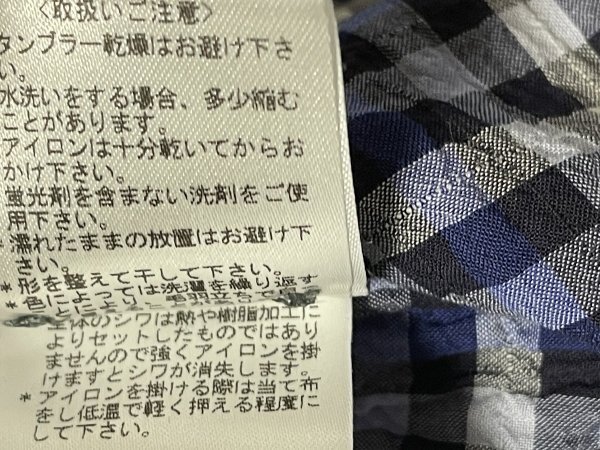 〈取扱いご注意〉
タンブラー乾燥はお避け下さ
い。
水洗いをする場合、多少縮む
ことがあります。
アイロンは十分乾いてからお
かけ下さい。
蛍光剤を含まない洗剤をご使
用下さい。
*濡れたままの放置はお避け下
さい。
*形を整えて干して下さい。
*色によっては洗濯を繰り返す
体のシワは熱や樹脂加工に
よりセットしたものではあり
ませんので強くアイロンを掛
けますとシワが消失します。
*アイロンを掛ける際は当て布
をし低温で軽く押える程度に
して下さい。